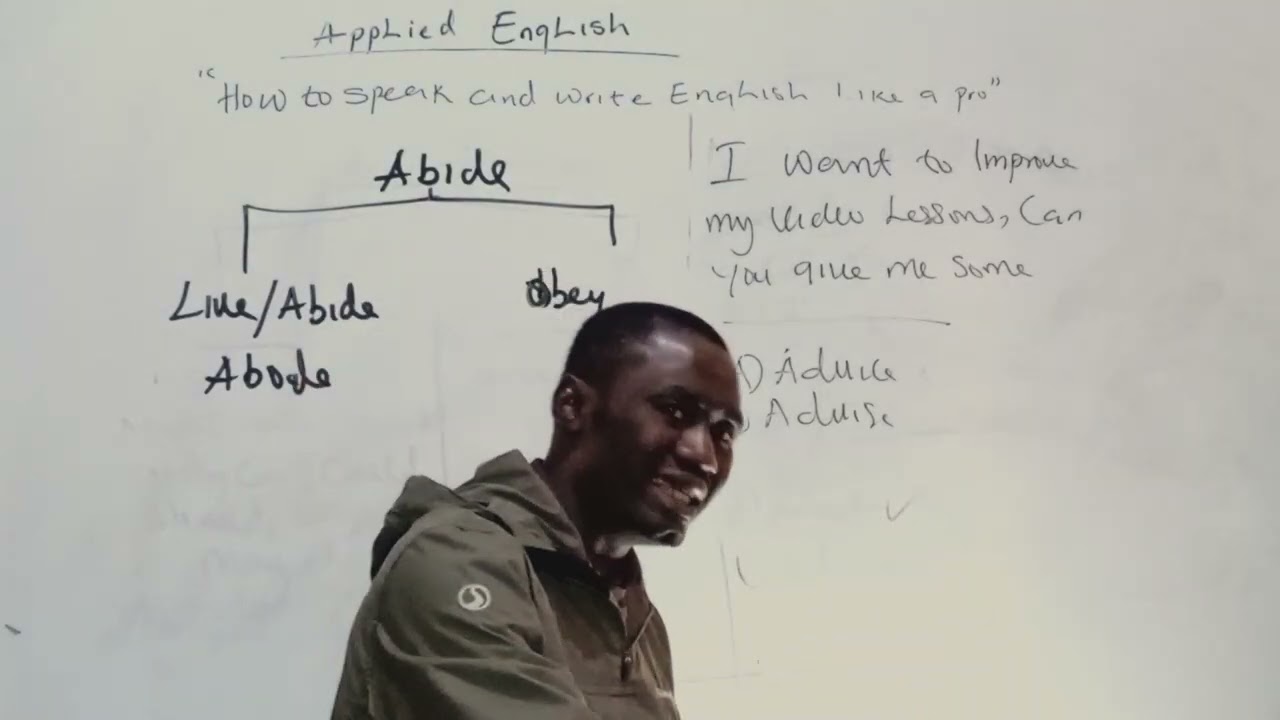 Applied English
"How to speak and write English like a pro"
Abide
Live/Abide
Abode
Obey
I want to Improve
my Video Lessons, Can
you give me some
Advice
Advise